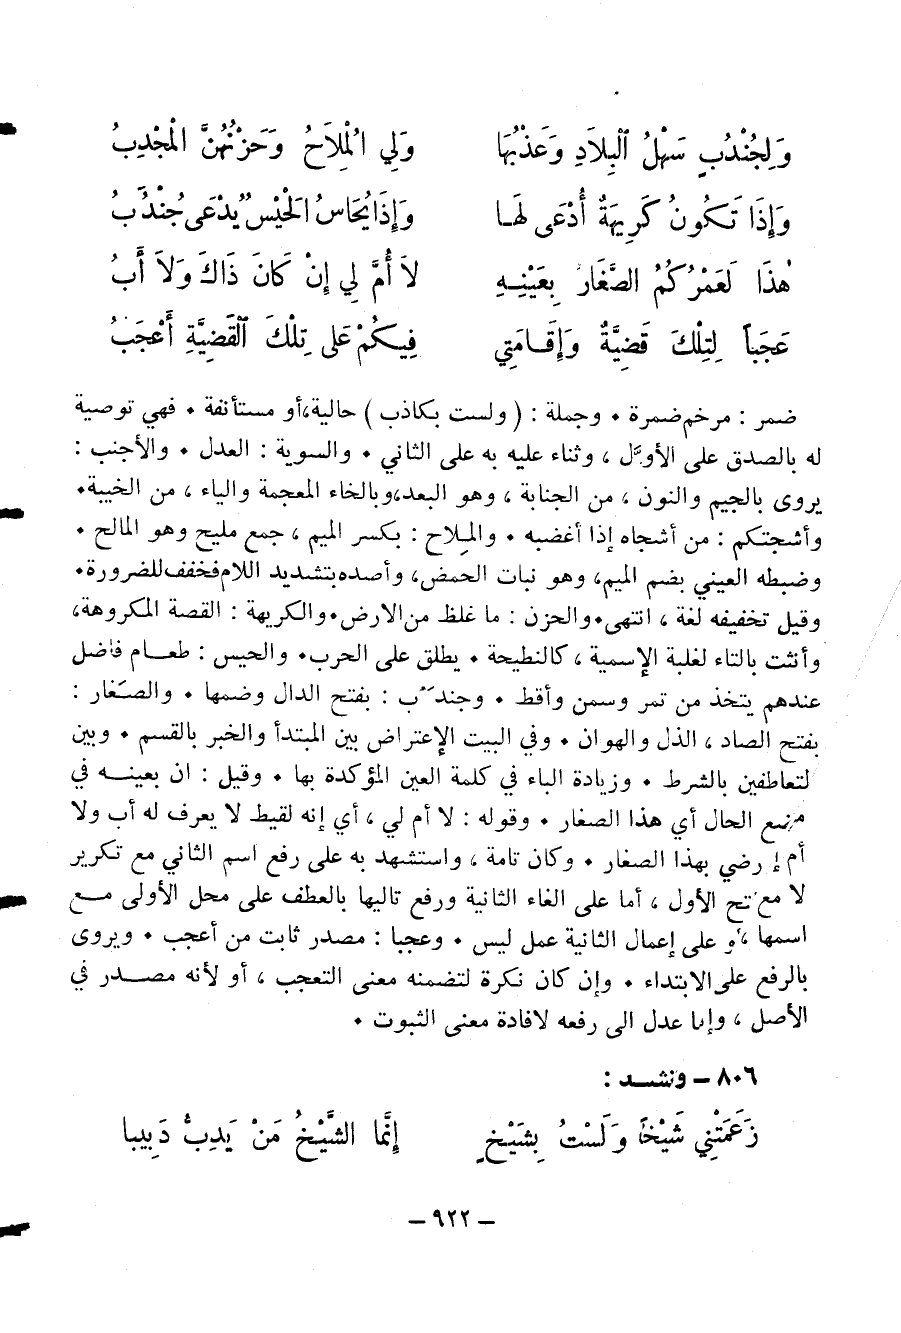 وَلِجُنْدُبٍ سَهْلُ ٱلْبِلَادِ وَعَذْبُهَا وَلِي الْمِلَاحُ وَحَزْنُهُنَّ الْمُجْدِبُ
وَإِذَا تَكُونُ كَرِيهَةٌ أُدْعَى لَهَا وَإِذَا يُحَاسُ الْحَيْسُ يُدْعَى جُنْدَبُ
هٰذَا لَعَمْرُكُمُ الصَّغَارُ بِعَيْنِهِ لَا أُمَّ لِي إِنْ كَانَ ذَاكَ وَلَا أَبُ
عَجَباً لِتِلْكَ قَضِيَّةٌ وَإِقَامَتِي فِيكُمْ عَلَى تِلْكَ ٱلْقَضِيَّةِ أَعْجَبُ
ضمر : مرخم ضمرة ٠ وجملة : ( ولست بكاذب ) حالية ، أو مستأنفة ٠ فهي توصية
له بالصدق على الأول ، وثناء عليه به على الثاني ٠ والسوية : العدل ٠ والأجنب :
يروى بالجيم والنون ، من الجنابة ، وهو البعد ، وبالخاء المعجمة والياء ، من الخيبة ٠
وأشجتكم : من أشجاه إذا أغضبه ٠ والملاح : بكسر الميم ، جمع مليح وهو المالح ٠
وضبطه العيني بضم الميم ، وهو نبات الحمض ، وأصده بتشديد اللام فخفف للضرورة ٠
وقيل تخفيفه لغة ، انتهى ٠ والحزن : ما غلظ من الارض ٠ والكريهة : القصة المكروهة ،
وأنثت بالتاء لغلبة الإسمية ، كالنطيحة ٠ يطلق على الحرب ٠ والحيس : طعام فاضل
عندهم يتخذ من تمر وسمن وأقط ٠ وجندَُب : بفتح الدال وضمها ٠ والصَغار :
بفتح الصاد ، الذل والهوان ٠ وفي البيت الإعتراض بين المبتدأ والخبر بالقسم ٠ وبين
لتعاطفين بالشرط ٠ وزيادة الباء في كلمة العين المؤكدة بها ٠ وقيل : ان بعينه في
الحال أي هذا الصغار ٠ وقوله : لا أم لي ، أي إنه لقيط لا يعرف له أب ولا
أم رضي بهذا الصغار ٠ وكان تامة ، واستشهد به على رفع اسم الثاني مع تكرير
لا مع الأول ، أما على الغاء الثانية ورفع تاليها بالعطف على محل الأولى مع
اسمها ، أو على إعمال الثانية عمل ليس ٠ وعجبا : مصدر ثابت من أعجب ٠ ويروى
بالرفع على الابتداء ٠ وإن كان نكرة لتضمنه معنى التعجب ، أو لأنه مصدر في
الأصل ، وإنما عدل الى رفعه لافادة معنى الثبوت ٠
٨٠٦ – ونشد :
زَعَمَتْنِي شَيْخاً وَلَسْتُ بِشَيْخٍ إِنَّمَا الشَّيْخُ مَنْ يَدِبُّ دَبِيبا
– ٩٢٢ –